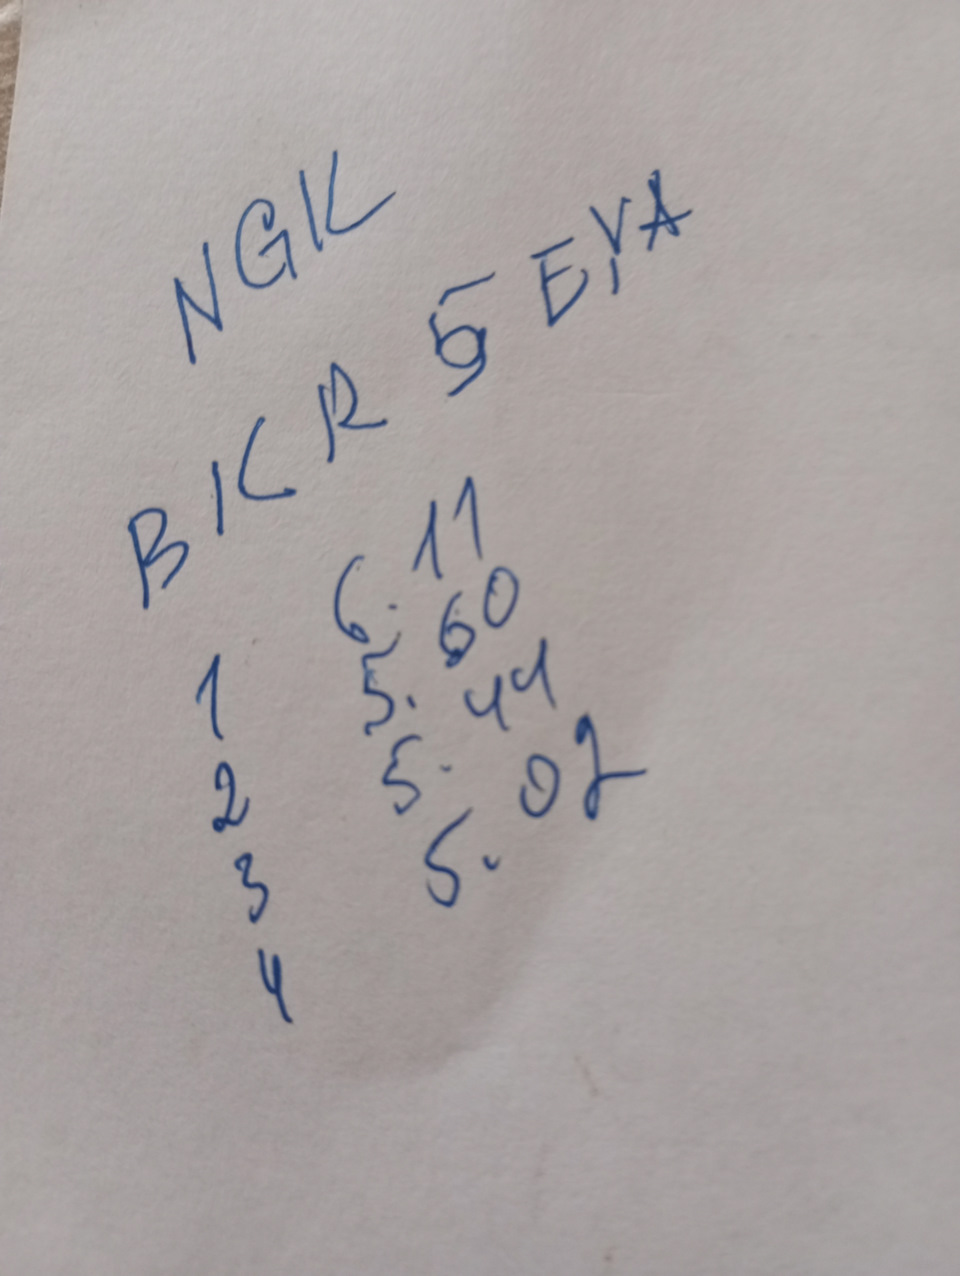 NGK
BKR 5 EYA
1 6.11
2 5.60
3 5.44
4 5.02